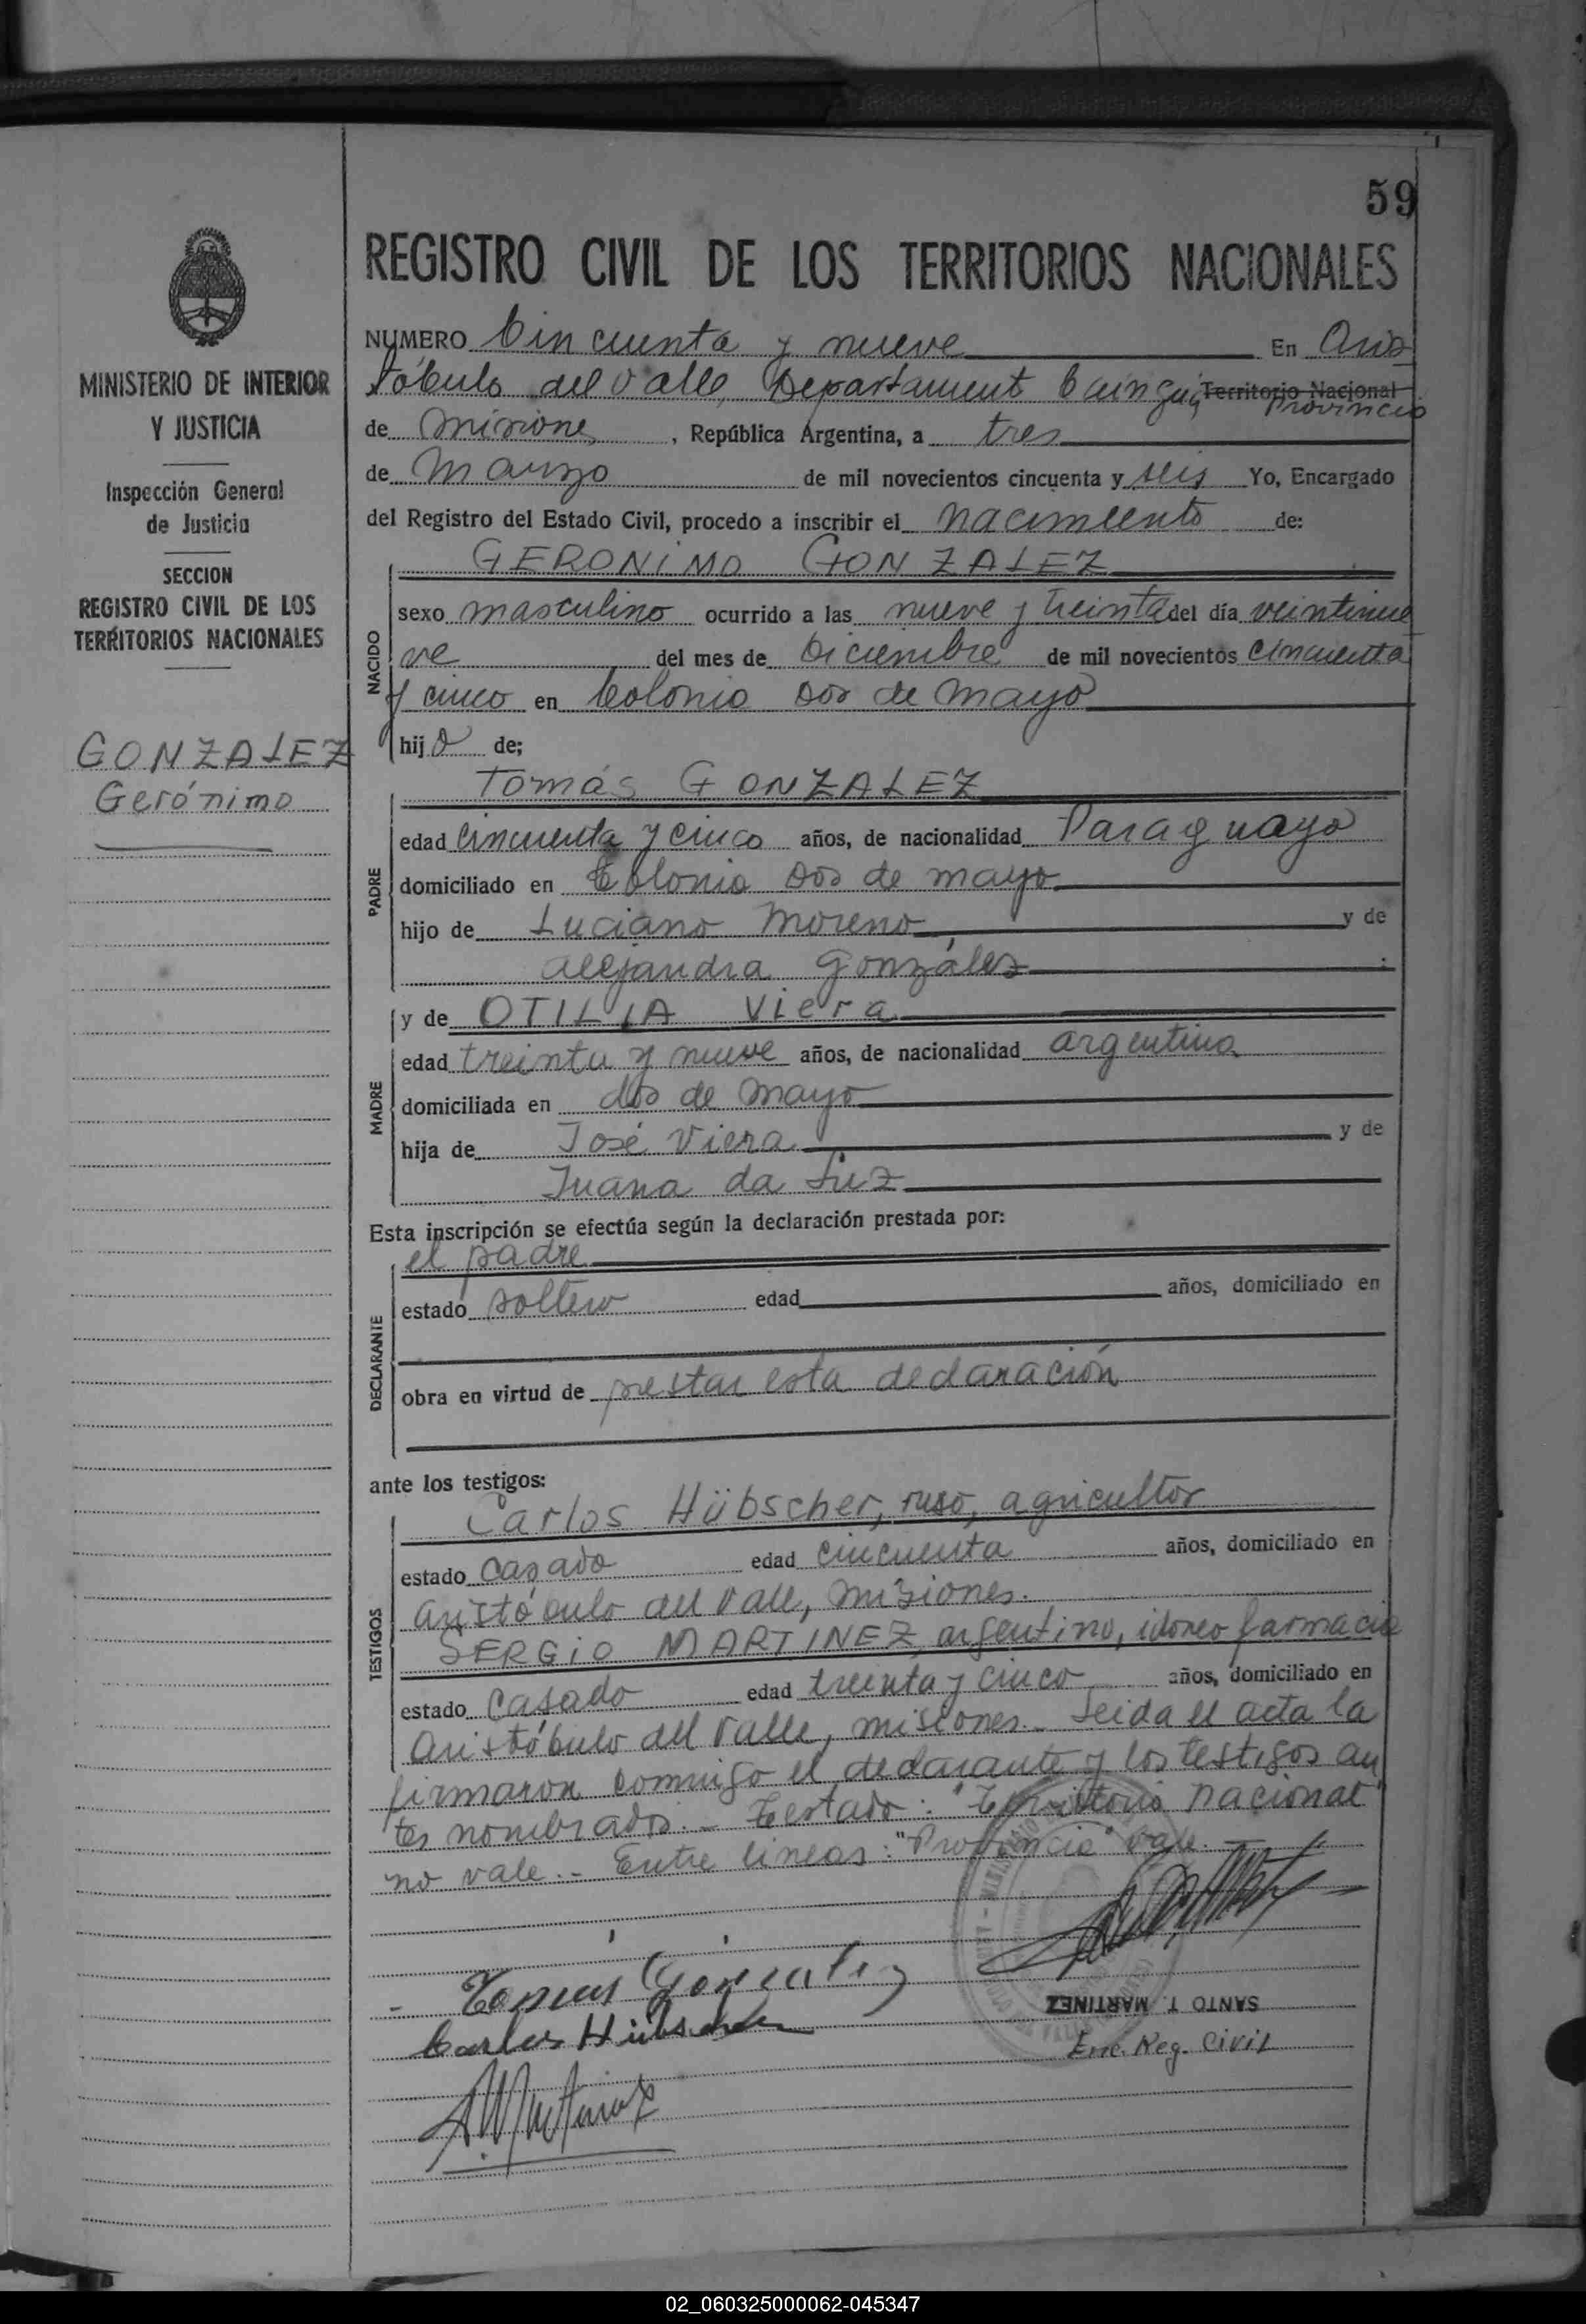 59
MINISTERIO DE INTERIOR
Y JUSTICIA
Inspección General
de Justicia
SECCION
REGISTRO CIVIL DE LOS
TERRITORIOS NACIONALES
GONZALEZ
Gerónimo
REGISTRO CIVIL DE LOS TERRITORIOS NACIONALES
NUMERO Cincuenta y nueve En Aris
tóbulo del Valle, Departament Cainguá Territorio Nacional Provincia
de Misiones, República Argentina, a tres
de Marzo de mil novecientos cincuenta y seis Yo, Encargado
del Registro del Estado Civil, procedo a inscribir el nacimiento de:
GERONIMO GONZALEZ
NACIDO
sexo masculino ocurrido a las nueve y treinta del día veintinue
ve del mes de Diciembre de mil novecientos cincuenta
y cinco en Colonia Dos de Mayo
hijo de;
Tomás GONZALEZ
PADRE
edad cincuenta y cinco años, de nacionalidad Paraguayo
domiciliado en Colonia Dos de mayo
hijo de Luciano Moreno y de
Alejandra González
y de OTILIA Viera
MADRE
edad treinta y nueve años, de nacionalidad argentina
domiciliada en dos de Mayo
hija de José Viera y de
Juana da Luz
Esta inscripción se efectúa según la declaración prestada por:
el padre
DECLARANTE
estado soltero edad años, domiciliado en
obra en virtud de prestar esta declaración
ante los testigos:
Carlos Hübscher, ruso, agricultor
TESTIGOS
estado casado edad cincuenta años, domiciliado en
Aristóbulo del Valle, Misiones.
SERGIO MARTINEZ, argentino, idoneo farmacia
estado casado edad treinta y cinco años, domiciliado en
Aristóbulo del Valle, misiones.- Leida el acta la
firmaron conmigo el declarante y los testigos an
tes nombrados.- Testado: "Territorio nacional"
no vale.- Entre lineas: "Provincia" vale.-
Tomas Gonzalez
Carlos Hübscher
SANTO T. MARTINEZ
Enc. Reg. Civil
02_060325000062-045347